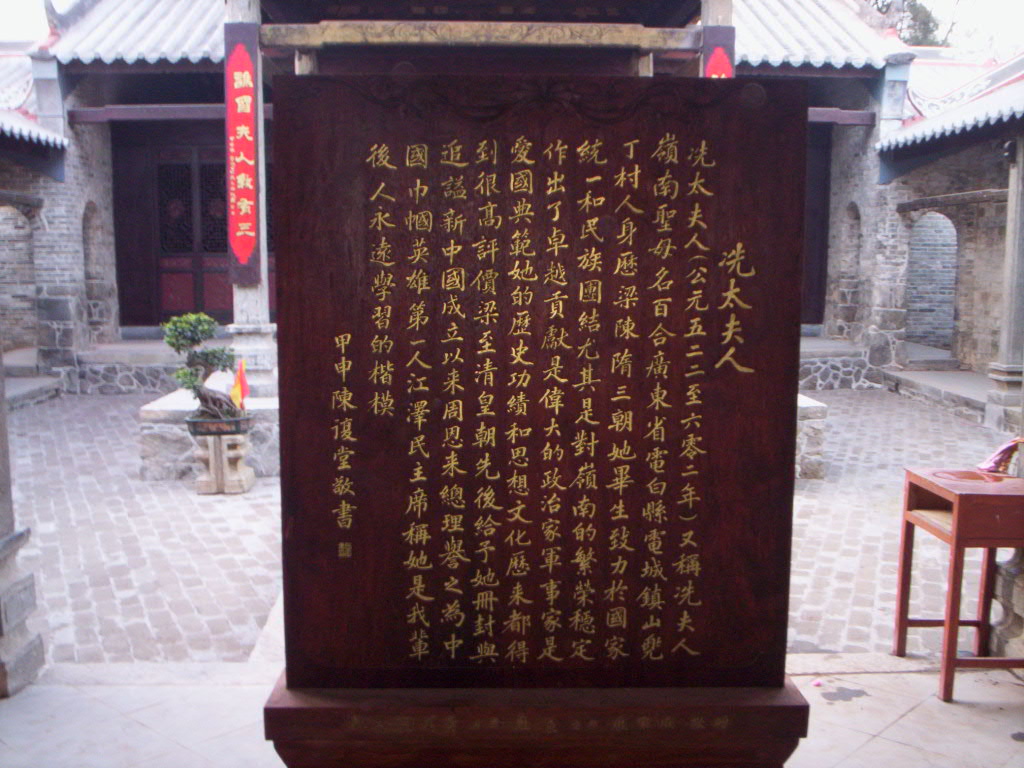 冼太夫人
冼太夫人(公元五二二至六零二年)又稱冼夫人
嶺南聖母名百合廣東省電白縣電城鎮山兜
丁村人身歷梁陳隋三朝她畢生致力於國家
統一和民族團結尤其是對嶺南的繁榮穩定
作出了卓越貢獻是偉大的政治家軍事家是
愛國典範她的歷史功績和思想文化歷来都得
到很高評價梁至清皇朝先後給予她冊封與
追謚新中國成立以来周恩来總理譽之為中
國巾幗英雄第一人江澤民主席稱她是我輩
後人永遠學習的楷模
甲申陳謖堂敬書
國夫人敕賣三